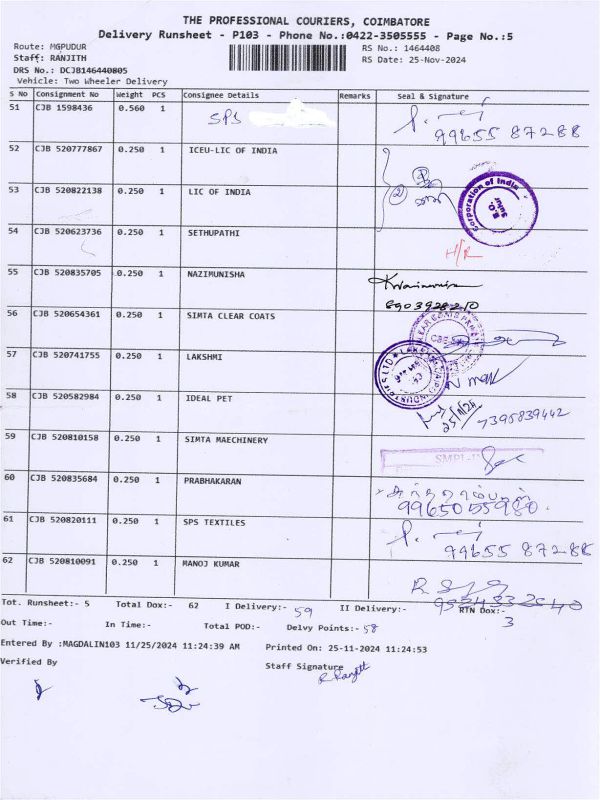 THE PROFESSIONAL COURIERS, COIMBATORE
Delivery Runsheet - P103 - Phone No.:0422-3505555 - Page No.:5
Route: MGPUDUR RS No.: 1464408
Staff: RANJITH RS Date: 25-Nov-2024
DRS No.: DCJB146440805
Vehicle: Two Wheeler Delivery
S No Consignment No Weight PCS Consignee Details Remarks Seal & Signature
51 CJB 1598436 0.560 1 SPS
99655 87288
52 CJB 520777867 0.250 1 ICEU-LIC OF INDIA
53 CJB 520822138 0.250 1 LIC OF INDIA
Corporation of India
54 CJB 520623736 0.250 1 SETHUPATHI H/R
55 CJB 520835705 0.250 1 NAZIMUNISHA
8903928210
56 CJB 520654361 0.250 1 SIMTA CLEAR COATS
57 CJB 520741755 0.250 1 LAKSHMI
58 CJB 520582984 0.250 1 IDEAL PET
25/11/24 7395839442
59 CJB 520810158 0.250 1 SIMTA MAECHINERY
60 CJB 520835684 0.250 1 PRABHAKARAN
9965055980
61 CJB 520820111 0.250 1 SPS TEXTILES
99655 87288
62 CJB 520810091 0.250 1 MANOJ KUMAR
Tot. Runsheet:- 5 Total Dox:- 62 I Delivery:- 59 II Delivery:- RTN Dox:- 3
Out Time:- In Time:- Total POD:- Delvy Points:- 58
Entered By :MAGDALIN103 11/25/2024 11:24:39 AM Printed On: 25-11-2024 11:24:53
Verified By Staff Signature
R Ranjith